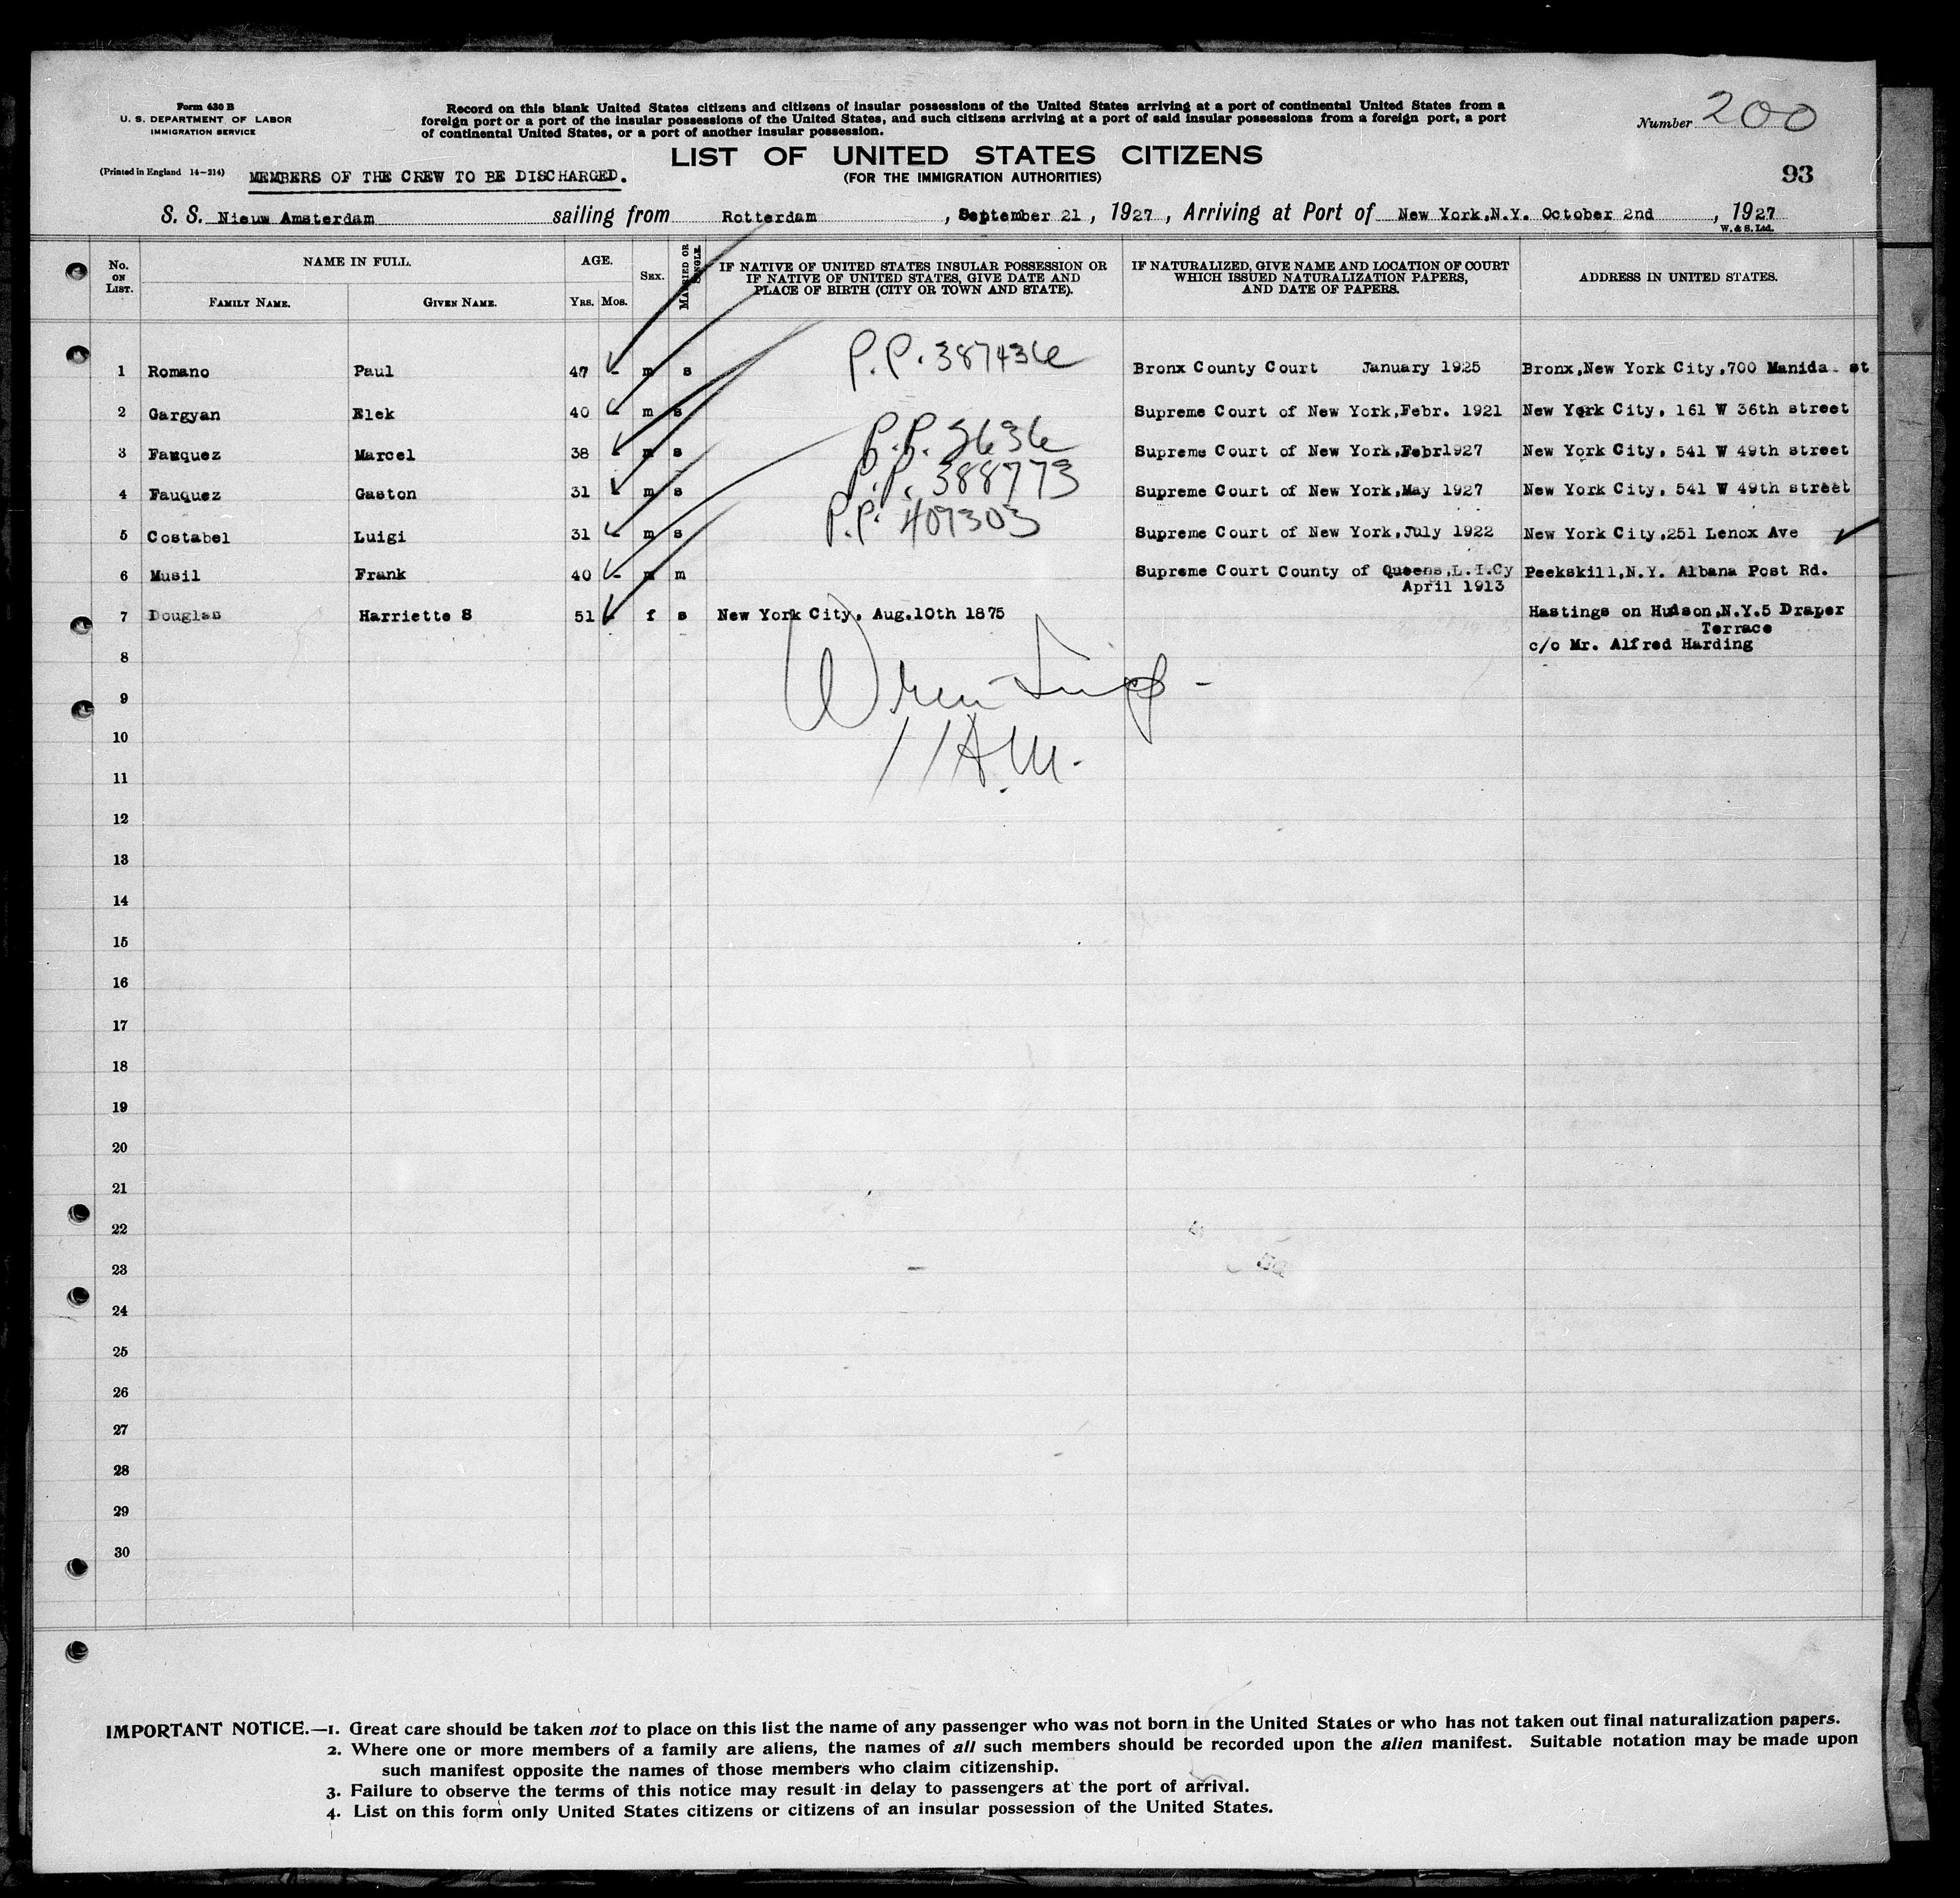 Form 630 B
U. S. DEPARTMENT OF LABOR
IMMIGRATION SERVICE
(Printed in England 14-214)
Record on this blank United States citizens and citizens of insular possessions of the United States arriving at a port of continental United States from a
foreign port or a port of the insular possessions of the United States, and such citizens arriving at a port of said insular possessions from a foreign port, a port
of continental United States, or a port of another insular possession.
Number 200
LIST OF UNITED STATES CITIZENS
(FOR THE IMMIGRATION AUTHORITIES)
93
MEMBERS OF THE CREW TO BE DISCHARGED.
S. S. Nieuw Amsterdam sailing from Rotterdam, September 21, 1927, Arriving at Port of New York,N.Y. October 2nd, 1927
W. & S. Ltd.
No. ON LIST. NAME IN FULL. AGE. SEX. MARRIED OR SINGLE. IF NATIVE OF UNITED STATES INSULAR POSSESSION OR IF NATIVE OF UNITED STATES, GIVE DATE AND PLACE OF BIRTH (CITY OR TOWN AND STATE). IF NATURALIZED, GIVE NAME AND LOCATION OF COURT WHICH ISSUED NATURALIZATION PAPERS, AND DATE OF PAPERS. ADDRESS IN UNITED STATES.
FAMILY NAME. GIVEN NAME. YRS. MOS.
1 Romano Paul 47 - m s P.P. 387436 Bronx County Court January 1925 Bronx,New York City,700 Manida st
2 Gargyan Elek 40 - m s Supreme Court of New York,Febr. 1921 New York City, 161 W 36th street
3 Fauquez Marcel 38 - m s P.P. 3636 Supreme Court of New York,Febr1927 New York City, 541 W 49th street
4 Fauquez Gaston 31 - m s P.P. 388773 Supreme Court of New York,May 1927 New York City, 541 W 49th street
5 Costabel Luigi 31 - m s P.P. 407303 Supreme Court of New York,July 1922 New York City,251 Lenox Ave
6 Musil Frank 40 - m m Supreme Court County of Queens,L.I.Cy Peekskill,N.Y. Albana Post Rd.
April 1913
7 Douglas Harriette S 51 - f s New York City, Aug.10th 1875 Hastings on Hudson,N.Y.5 Draper
Terrace
8 c/o Mr. Alfred Harding
9
10
11 A.M.
11
12
13
14
15
16
17
18
19
20
21
22
23
24
25
26
27
28
29
30
IMPORTANT NOTICE.—1. Great care should be taken not to place on this list the name of any passenger who was not born in the United States or who has not taken out final naturalization papers.
2. Where one or more members of a family are aliens, the names of all such members should be recorded upon the alien manifest. Suitable notation may be made upon
such manifest opposite the names of those members who claim citizenship.
3. Failure to observe the terms of this notice may result in delay to passengers at the port of arrival.
4. List on this form only United States citizens or citizens of an insular possession of the United States.